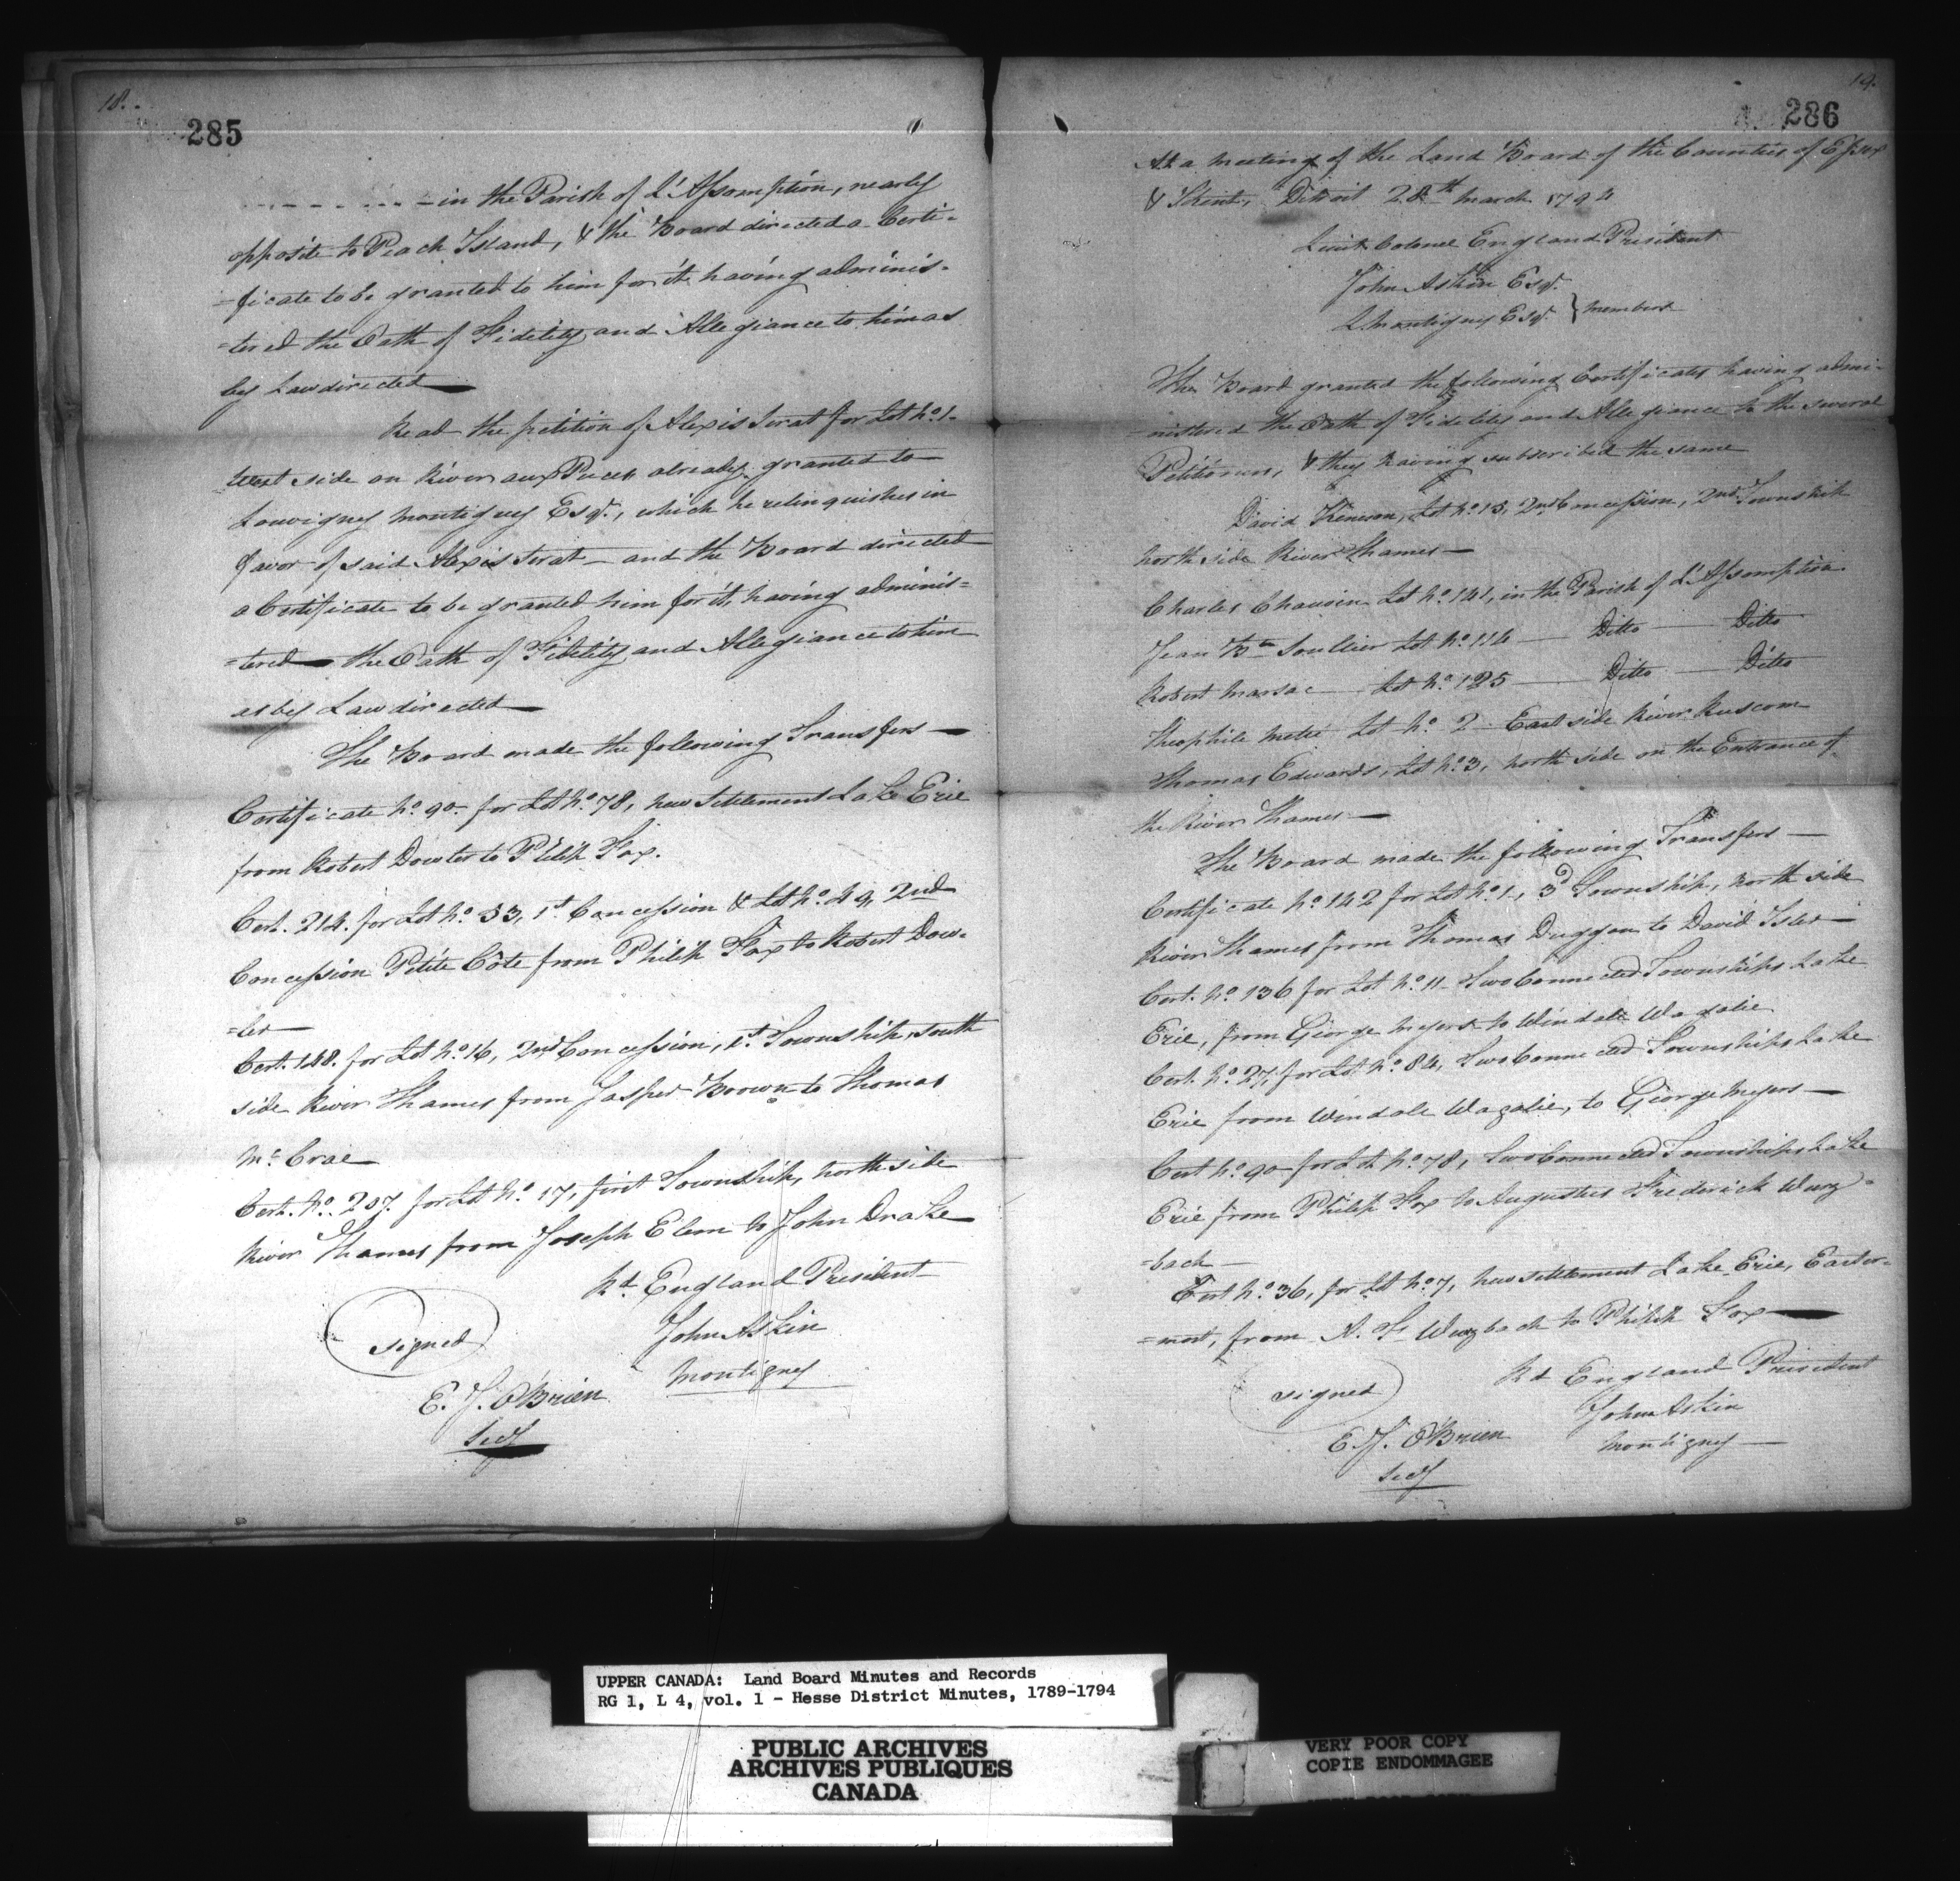 18.
285
- - - - - - - - in the Parish of L'Assomption, nearly
opposite to Peach Island, & the Board directed a Certi-
-ficate to be granted to him for it having adminis-
-tered the Oath of Fidelity and Allegiance to him as
by Law directed
Read the petition of Alexis Serat for Lot No. 1-
West side on River aux Puces already granted to
Louvigney Montigney Esqr., which he relinquishes in
favor of said Alexis Serat - and the Board directed
a Certificate to be granted him for it, having adminis=
=tered the Oath of Fidelity and Allegiance to him
as by Law directed
The Board made the following Transfers —
Certificate No. 90- for Lot No. 78, New Settlement Lake Erie
from Robert Dowler to Philip Fox.
Cert. 214. for Lot No. 33, 1st. Concession & Lot No. 49, 2nd
Concession Petite Côte from Philip Fox to Robert Dow-
=ler
Cert. 148. for Lot No. 16, 2nd Concession, 1st. Township, south
side River Thames from Jasper Brown to Thomas
Mc. Crae
Cert. No. 207. for Lot No. 17, first Township, north side
River Thames from Joseph Elem to John Drake
Rd. England President
signed
John Askin
Montigney
E. J. O'Brien
Secy
19.
286
At a meeting of the Land Board of the Counties of Essex
& Kent, Detroit 28th March 1794
Lieut. Colonel England President
John Askin Esqr.
L Montigney Esqr. } members
The Board granted the following Certificates having admi-
-nistered the Oath of Fidelity and Allegiance to the several
Petitioners, & they having subscribed the same
David Kenison, Lot No. 13, 2nd Concession, 2nd Township
North side River Thames —
Charles Chauvin Lot No. 141, in the Parish of L'Assomption
Jean Bte Soullier Lot No. 114 — Ditto — Ditto
Robert Marsac — Lot No. 125 — Ditto — Ditto
Theophile Meté Lot No. 2 - East side River Ruscom
Thomas Edwards, Lot No. 3, north side on the Entrance of
the River Thames —
The Board made the following Transfers —
Certificate No. 142 for Lot No. 1, 3d Township, North side
River Thames from Thomas Duggan to David Isler —
Cert. No. 136 for Lot No. 11 - Two Connected Townships Lake
Erie, from George Meyers to Windale Wagalie
Cert. No. 27, for Lot No. 84, Two Connected Townships Lake
Erie from Windale Wagalie, to George Meyers —
Cert No. 90 for Lot No. 78, Two Connected Townships Lake
Erie from Philip Fox to Augustus Frederick Wurz-
=bach —
Cert No. 36, for Lot No. 7, New Settlement Lake Erie, Easter-
=most, from A. F. Wurzbach to Philip Fox
Rd England President
signed
John Askin
E. J. O'Brien
Montigney —
Secy
UPPER CANADA: Land Board Minutes and Records
RG 1, L 4, vol. 1 - Hesse District Minutes, 1789-1794
PUBLIC ARCHIVES
ARCHIVES PUBLIQUES
CANADA
VERY POOR COPY
COPIE ENDOMMAGEE